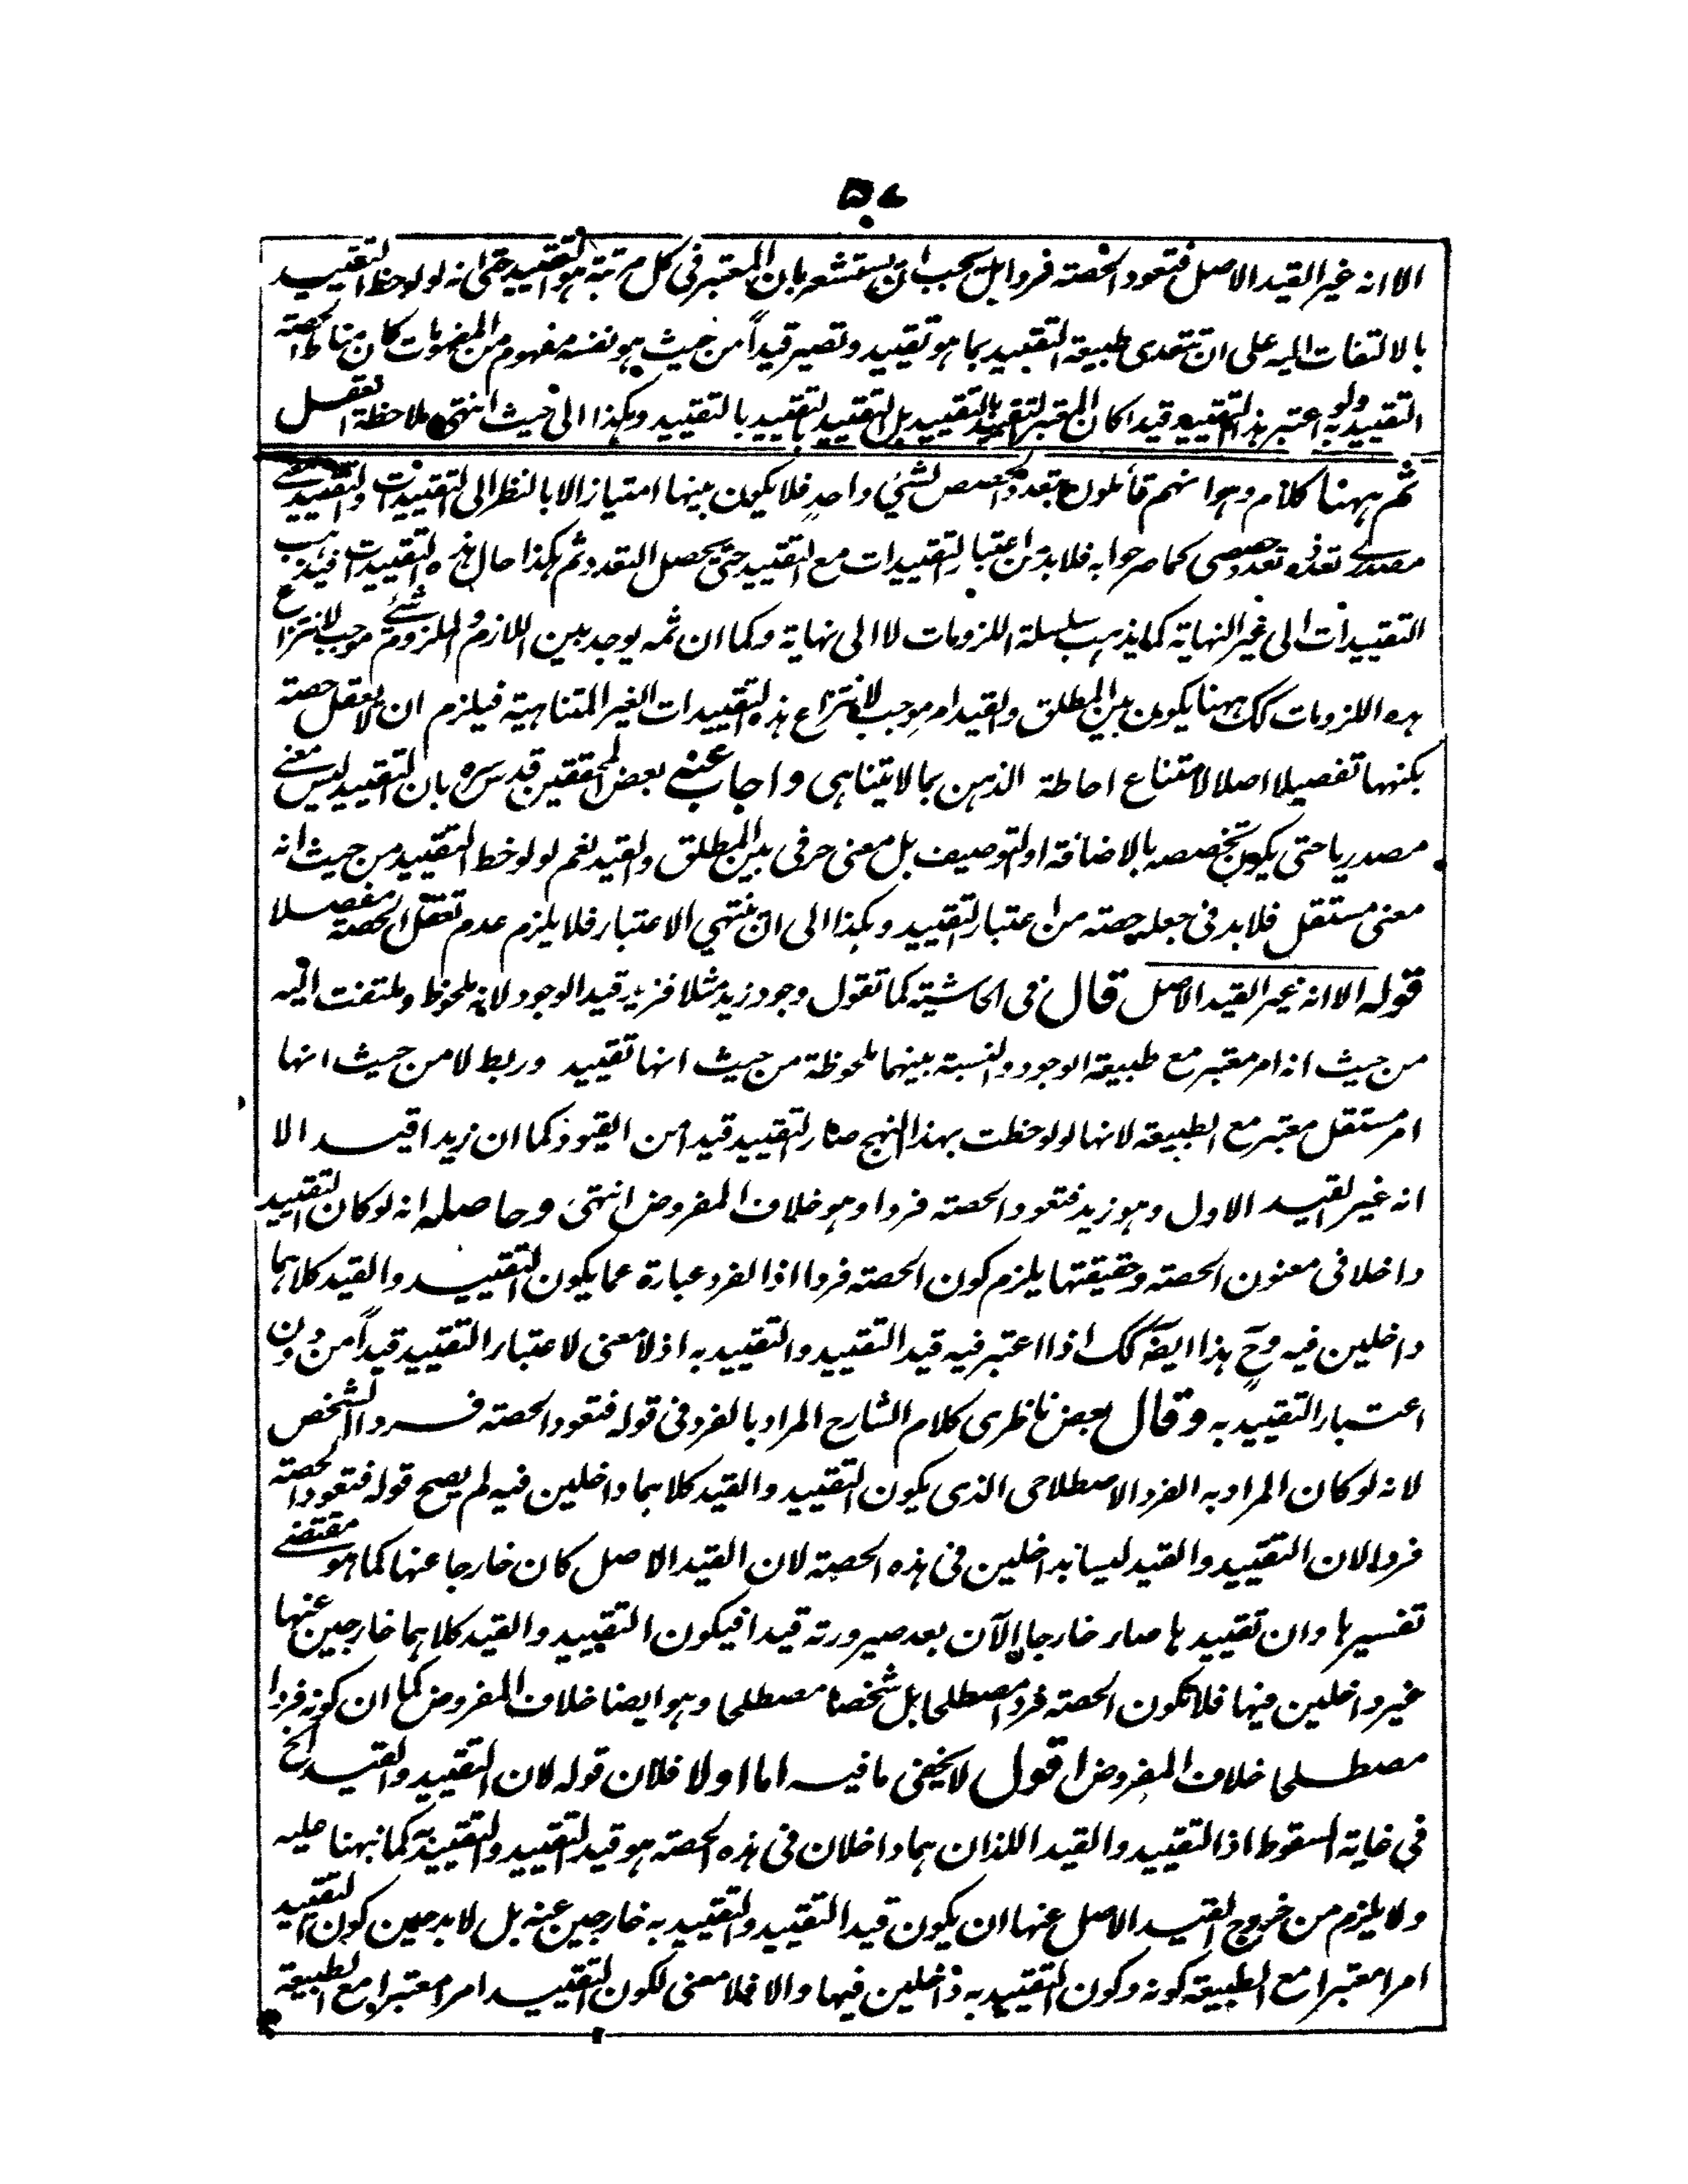 ٥٧
الا انه غير القيد الاصل فتعود الحصته فردا بل يجب ان يستشعر بان المعتبر فى كل مرتبة هو التقييد حتى انه لو لوحظ التقييد
بالالتفات اليه على ان تتعدى طبيعة التقييد بما هو تقييد وتصير قيداً من حيث هو نفسه مفهوم من المفهومات كان مناط الحصته
التقييد به ولو اعتبر هذا التقييد قيدا كان المعتبر التقييد بالتقييد بل التقييد بالتقييد بالتقييد وهكذا الى حيث انتهى ملاحظة العقل
ثم ههنا كلام وهو انهم قائلون بتعدد الحصص لشئ واحد فلا يكون بينها امتياز الا بالنظر الى التقييدات والتقييد معنى
مصدرى تعدده تعدد حصصى كما صرحوا به فلا بد من اعتبار التقييدات مع التقييد حتى يحصل التعدد ثم هكذا حال هذه التقييدات فيذهب
التقييدات الى غير النهاية كما يذهب سلسلة اللزومات لا الى نهاية وكما ان ثمه يوجد بين اللازم والملزوم شئ موجب لانتزاع
هذه اللزومات كك ههنا يكون بين المطلق والقيد امر موجب لانتزاع هذه التقييدات الغير المتناهية فيلزم ان لا يعقل حصته
بكنهها تفصيلا اصلا لامتناع احاطة الذهن بما لا يتناهى واجاب عنه بعض المحققين قدس سره بان التقييد ليس معنى
مصدريا حتى يكون تخصصه بالاضافة او التوصيف بل معنى حرفى بين المطلق والقيد نعم لو لوحظ التقييد من حيث انه
معنى مستقل فلا بد فى جعله حصته من اعتبار التقييد وهكذا الى ان ينتهي الاعتبار فلا يلزم عدم تعقل الحصته مفصلا
قوله الا انه غير القيد الاصل قال فى الحاشية كما تقول وجود زيد مثلا فزيد قيد الوجود لانه ملحوظ وملتفت اليه
من حيث انه امر معتبر مع طبيعة الوجود والنسبة بينهما ملحوظة من حيث انها تقييد وربط لا من حيث انها
امر مستقل معتبر مع الطبيعة لانها لو لوحظت بهذا النهج صار التقييد قيدا من القيود كما ان زيدا قيد الا
انه غير القيد الاول وهو زيد فتعود الحصته فردا وهو خلاف المفروض انتهى وحاصله انه لو كان التقييد
داخلا فى معنون الحصته وحقيقتها يلزم كون الحصته فردا اذ الفرد عبارة عما يكون التقييد والقيد كلاهما
داخلين فيه وح هذا ايضا كك اذا اعتبر فيه قيد التقييد والتقييد به اذ لا معنى لاعتبار التقييد قيداً من دون
اعتبار التقييد به وقال بعض ناظرى كلام الشارح المراد بالفرد فى قوله فتعود الحصته فردا الشخص
لانه لو كان المراد به الفرد الاصطلاحى الذى يكون التقييد والقيد كلاهما داخلين فيه لم يصح قوله فتعود الحصته
فردا لان التقييد والقيد ليسا بداخلين فى هذه الحصته لان القيد الاصل كان خارجا عنها كما هو مقتضى
تفسيرها وان تقييدها صار خارجا الآن بعد صيرورته قيدا فيكون التقييد والقيد كلاهما خارجين عنها
غير داخلين فيها فلا تكون الحصته فردا مصطلحا بل شخصا مصطلحا وهو ايضا خلاف المفروض كما ان كونه فردا
مصطلحا خلاف المفروض اقول لا يخفى ما فيه اما اولا فلان قوله لان التقييد والقيد الخ
في غاية السقوط اذ التقييد والقيد اللذان هما داخلان فى هذه الحصته هو قيد التقييد والتقييد به كما نبهنا عليه
ولا يلزم من خروج القيد الاصل عنها ان يكون قيد التقييد والتقييد به خارجين عنه بل لا بد حين كون التقييد
امرا معتبرا مع الطبيعة كونه وكون التقييد به داخلين فيها والا فلا معنى لكون التقييد امرا معتبرا مع الطبيعة